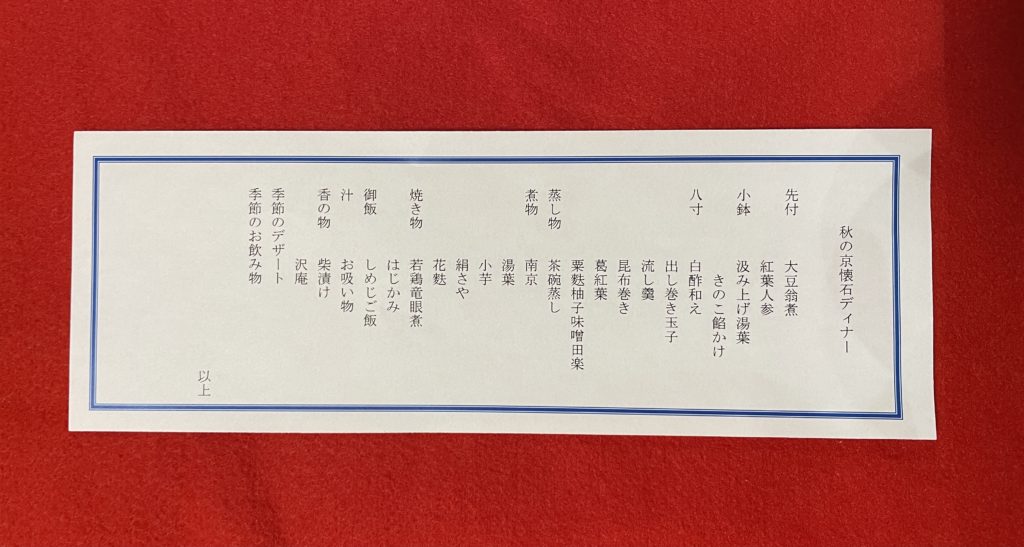 秋の京懐石ディナー
先付　大豆翁煮
紅葉人参
小鉢　汲み上げ湯葉
きのこ餡かけ
八寸　白酢和え
出し巻き玉子
流し羹
昆布巻き
葛紅葉
粟麩柚子味噌田楽
蒸し物　茶碗蒸し
煮物　南京
湯葉
小芋
絹さや
花麩
焼き物　若鶏竜眼煮
はじかみ
御飯　しめじご飯
汁　お吸い物
香の物　柴漬け
沢庵
季節のデザート
季節のお飲み物
以上